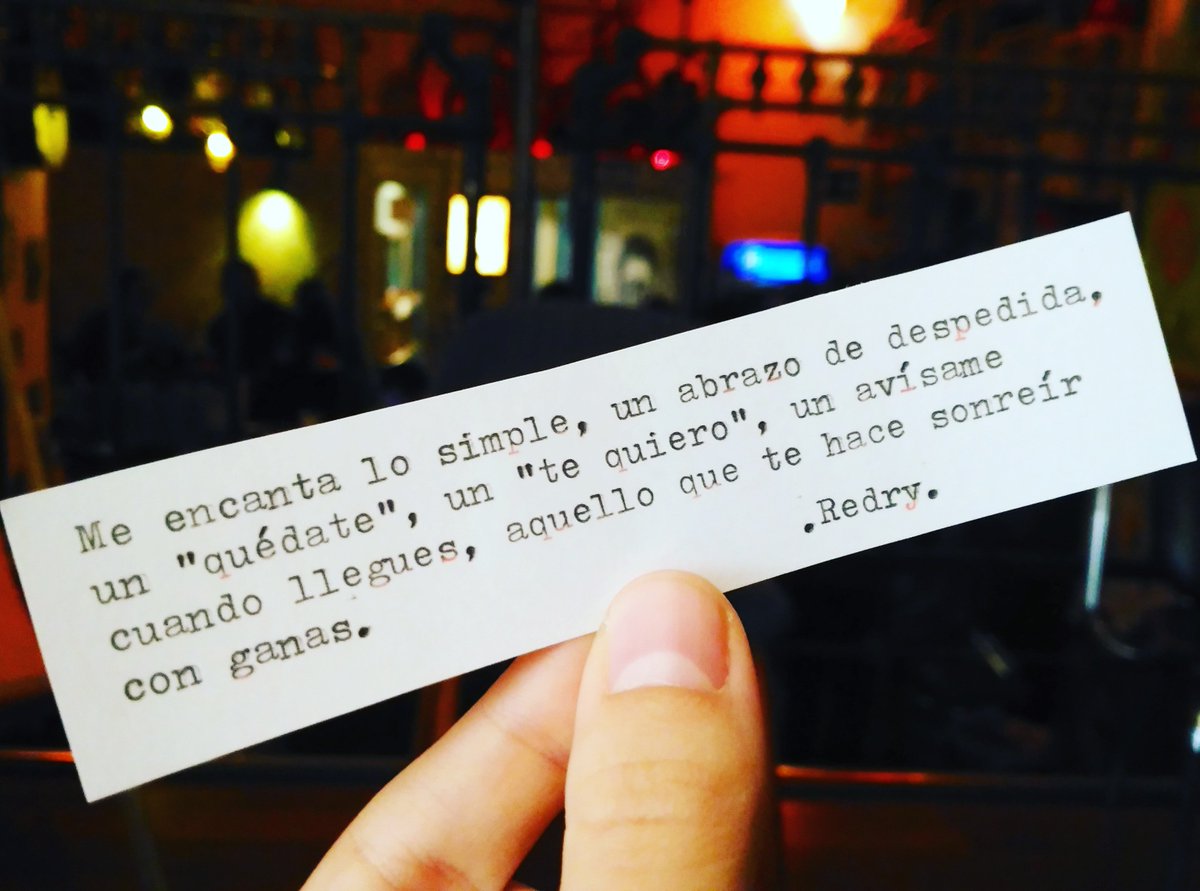 Me encanta lo simple, un abrazo de despedida,
un "quédate", un "te quiero", un avísame
cuando llegues, aquello que te hace sonreír
con ganas.
.Redry.